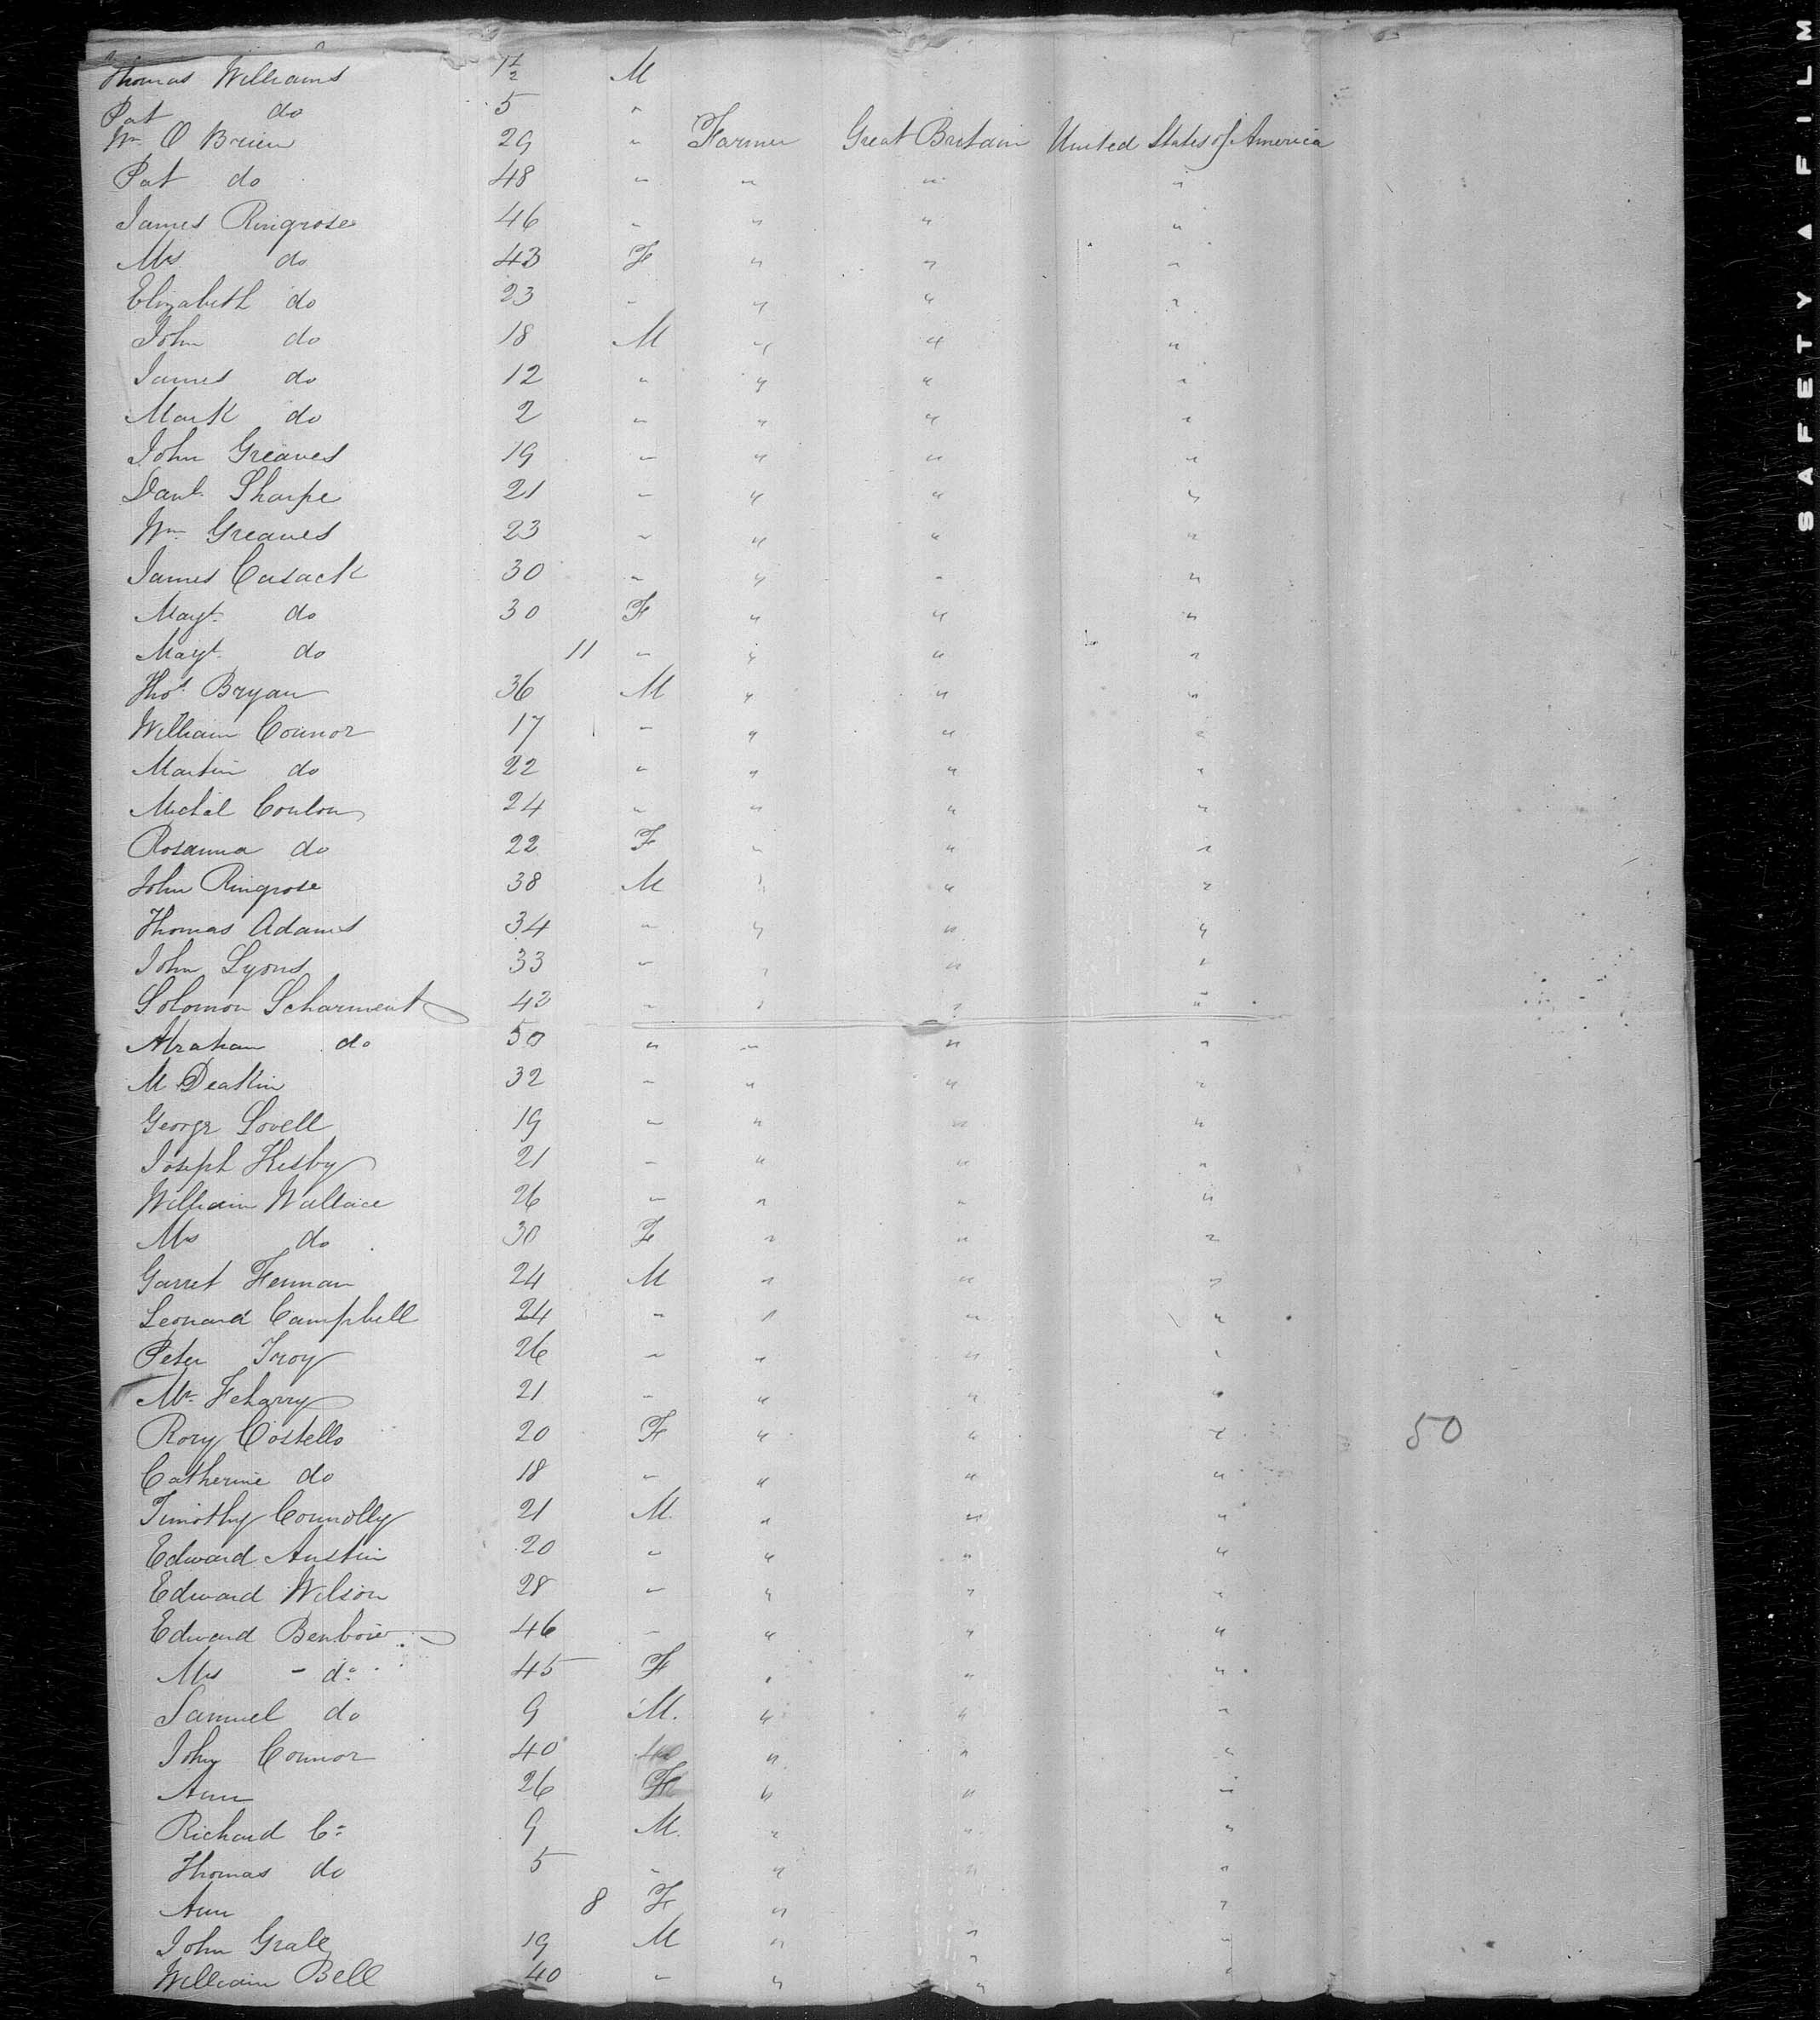 Thomas Williams 1 1/2 M
Pat do 5 "
Wm O Brien 29 " Farmer Great Britain United States of America
Pat do 48 " " " "
James Ringrose 46 " " " "
Mrs do 43 F " " "
Elizabeth do 23 " " " "
John do 18 M " " "
James do 12 " " " "
Mark do 2 " " " "
John Greaves 19 " " " "
Danl. Sharpe 21 " " " "
Wm. Greaves 23 " " " "
James Cusack 30 " " " "
Magt. do 30 F " " "
Magt. do 11 " " " "
Thos. Bryan 36 M " " "
William Connor 17 " " " "
Martin do 22 " " " "
Michl Conlon 24 " " " "
Rosanna do 22 F " " "
John Ringrose 38 M " " "
Thomas Adams 34 " " " "
John Lyons 33 " " " "
Solomon Scharment 42 " " " "
Abraham do 50 " " " "
M Deakin 32 " " " "
George Lovell 19 " " " "
Joseph Kisby 21 " " " "
William Wallace 26 " " " "
Mrs do 30 F " " "
Garret Fennan 24 M " " "
Leonard Campbell 24 " " " "
Peter Troy 26 " " " "
Mr. 21 " " " "
Rory Costello 20 F " " " 50
Catherine do 18 " " " "
Timothy Connolly 21 M. " " "
Edward Austin 20 " " " "
Edward Wilson 28 " " " "
Edward Benbow 46 " " " "
Mrs - do 45 F " " "
Samuel do 9 M. " " "
John Connor 40 " " "
Ann 26 F " " "
Richard Co 9 M. " " "
Thomas do 5 " " " "
Ann 8 F " "
John Grale 19 M " " "
William Bell 40 " " " "
SAFETY A FILM